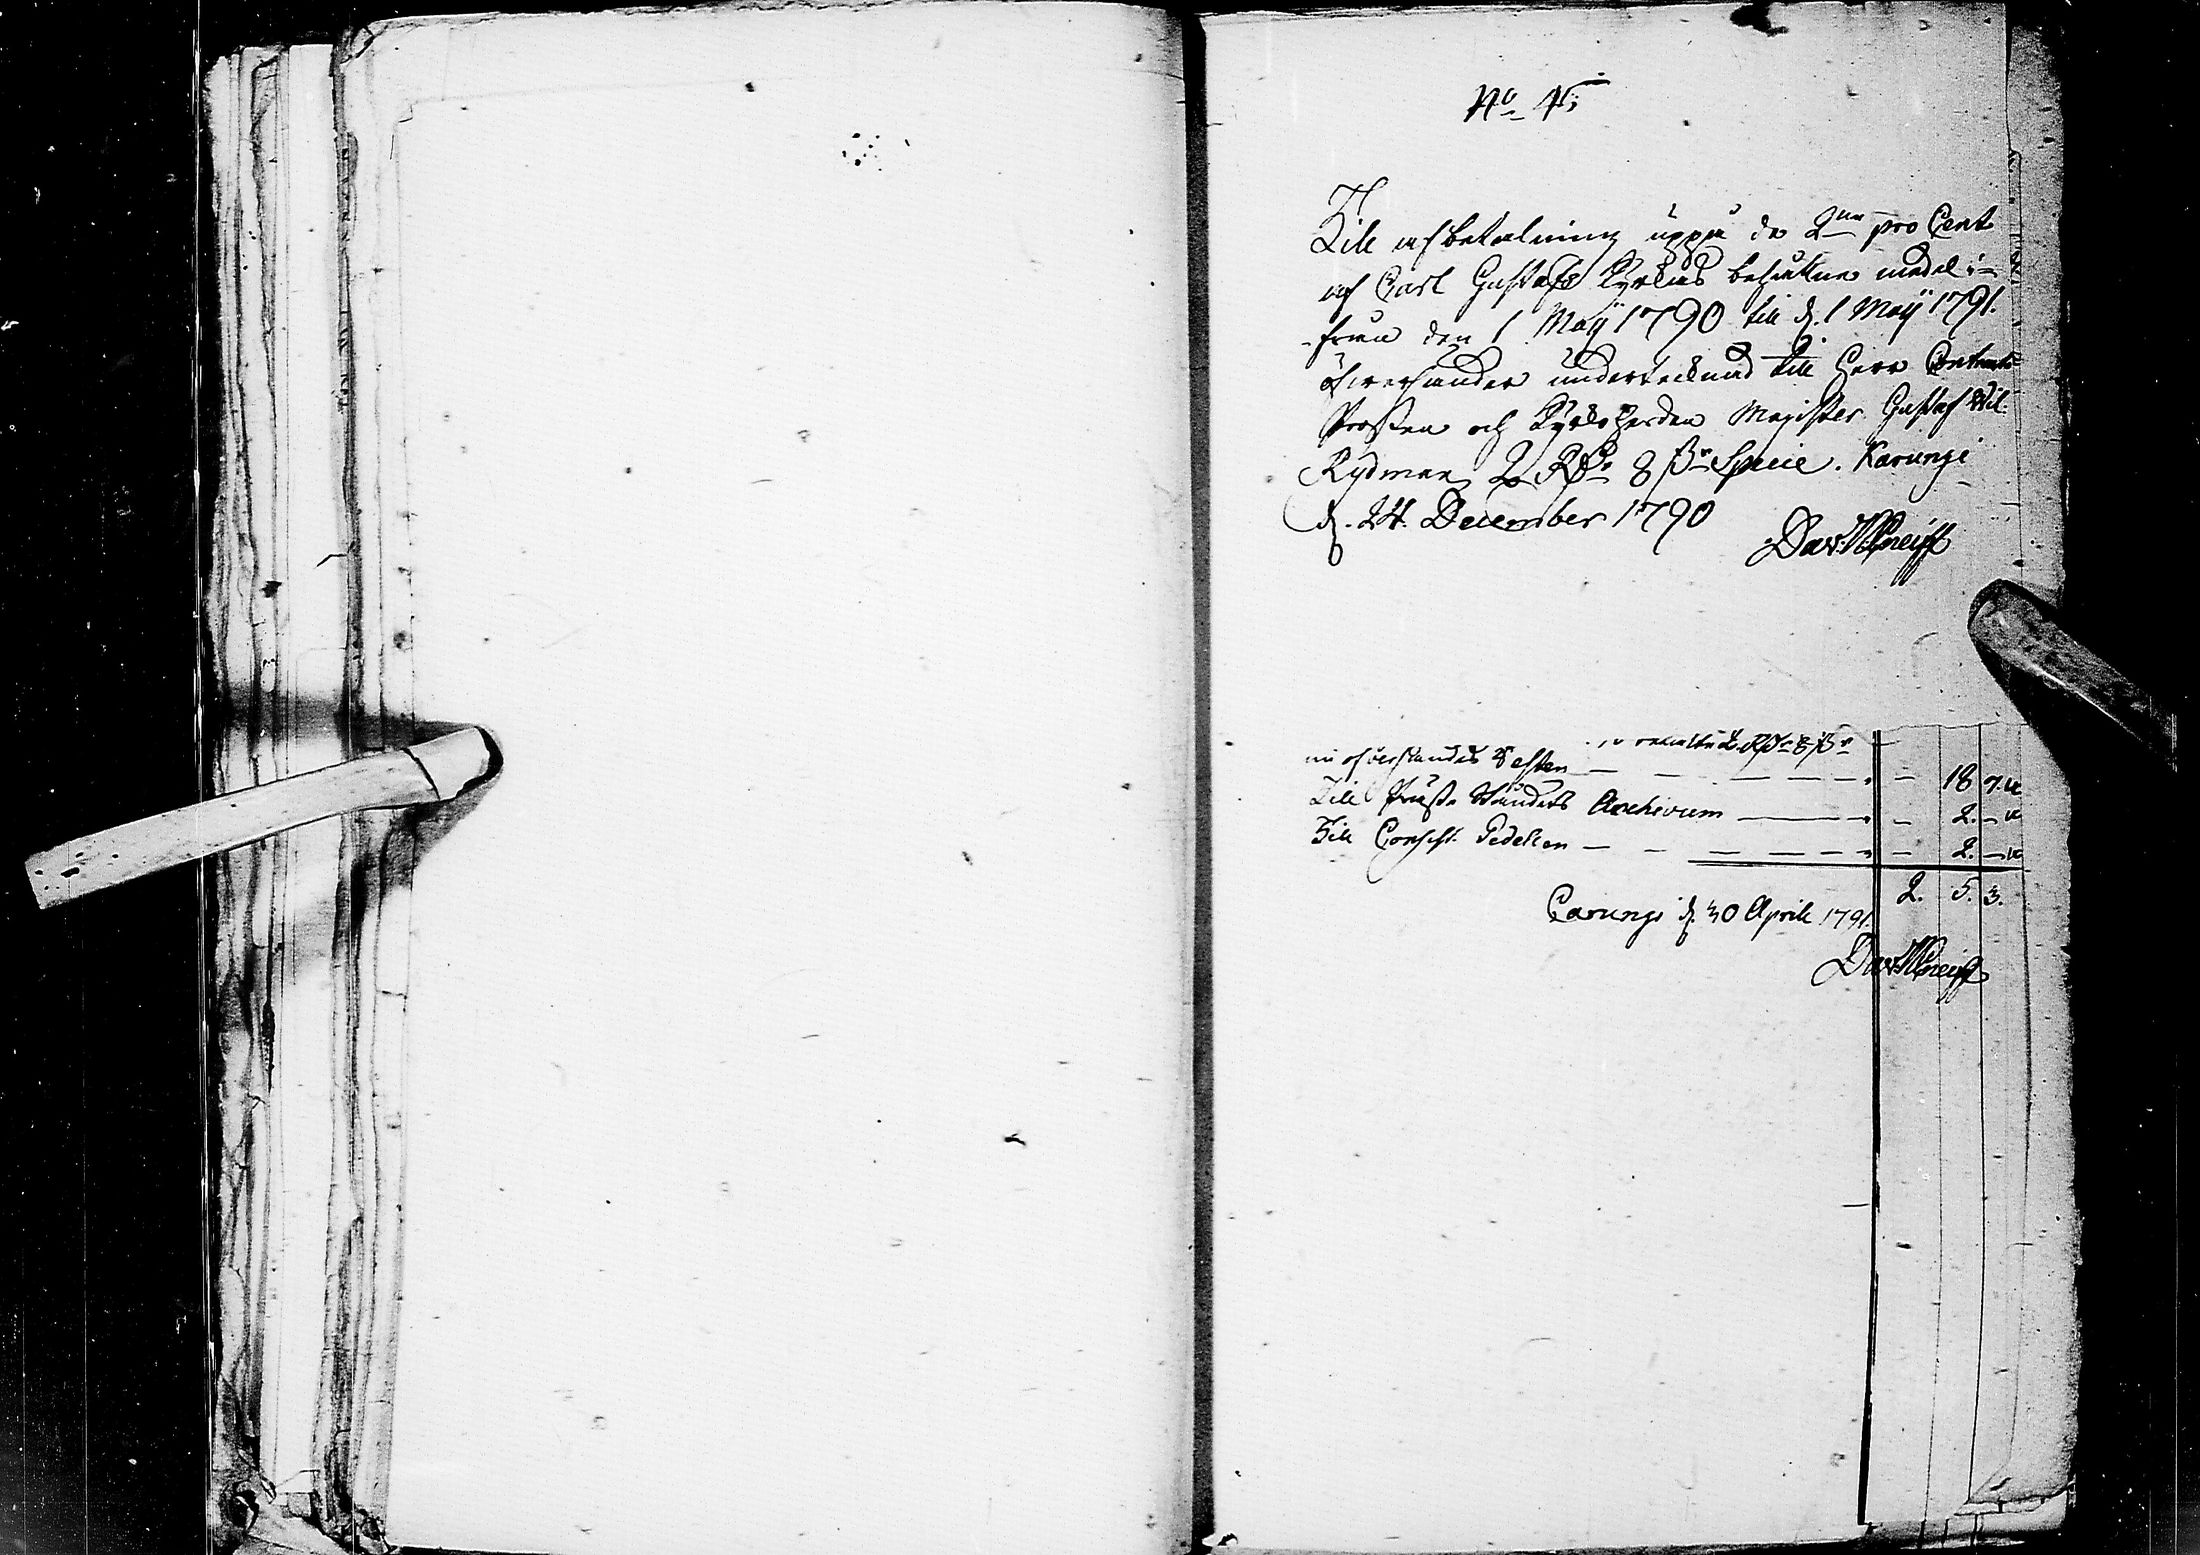 No 45
Till afbetalning uppå de 2ne pro Cent
af Carl Gustafs Kyrkas behållne medel i-
från den 1 Maij 1790 till d. 1 Maij 1791.
öfversänder undertecknad till Herr Contracts
Prosten och Kyrkoherden Magister Gustaf Wil.
Rydman 2 Rd 8 s Specie. Karungi
d. 24. December 1790
Dav. Kneiff
2 Rd 8 s
nu öfversändes Resten — — — — 18 7.
Till Präste Ståndets Archivum — — 2. —
Till Consist. Pedellen — — — — — 2. —
2. 5. 3.
Carungi d. 30 April 1791.
Dav. Kneiff